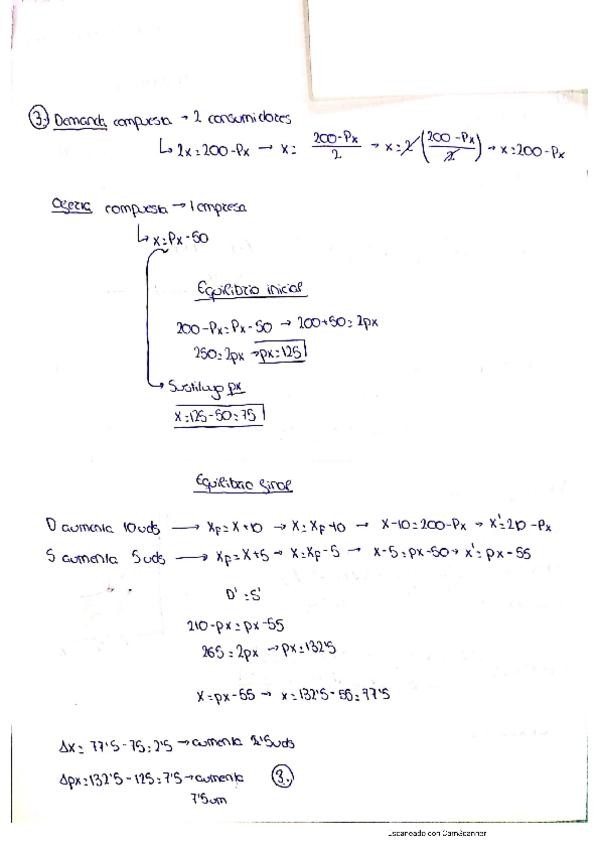 3. Demanda compuesta → 2 consumidores
↳ 2x = 200-Px → x = 200-Px/2 → x = 2(200-Px/2) → x = 200-Px
Oferta compuesta → 1 empresa
↳ x = Px-50
Equilibrio inicial
200-Px = Px-50 → 200+50 = 2px
250 = 2px → px = 125
Sustituyo px
x = 125-50 = 75
Equilibrio final
D aumenta 10 uds → XF = X+10 → X = XF-10 → X-10 = 200-Px → X' = 210-Px
S aumenta 5 uds → XF = X+5 → X = XF-5 → X-5 = px-50 → x' = px-55
D' = S'
210-px = px-55
265 = 2px → px = 132'5
X = px-55 → x = 132'5-55 = 77'5
Δx = 77'5-75 = 2'5 → aumenta 2'5 uds
Δpx = 132'5-125 = 7'5 → aumenta 3.
7'5 um
Escaneado con CamScanner